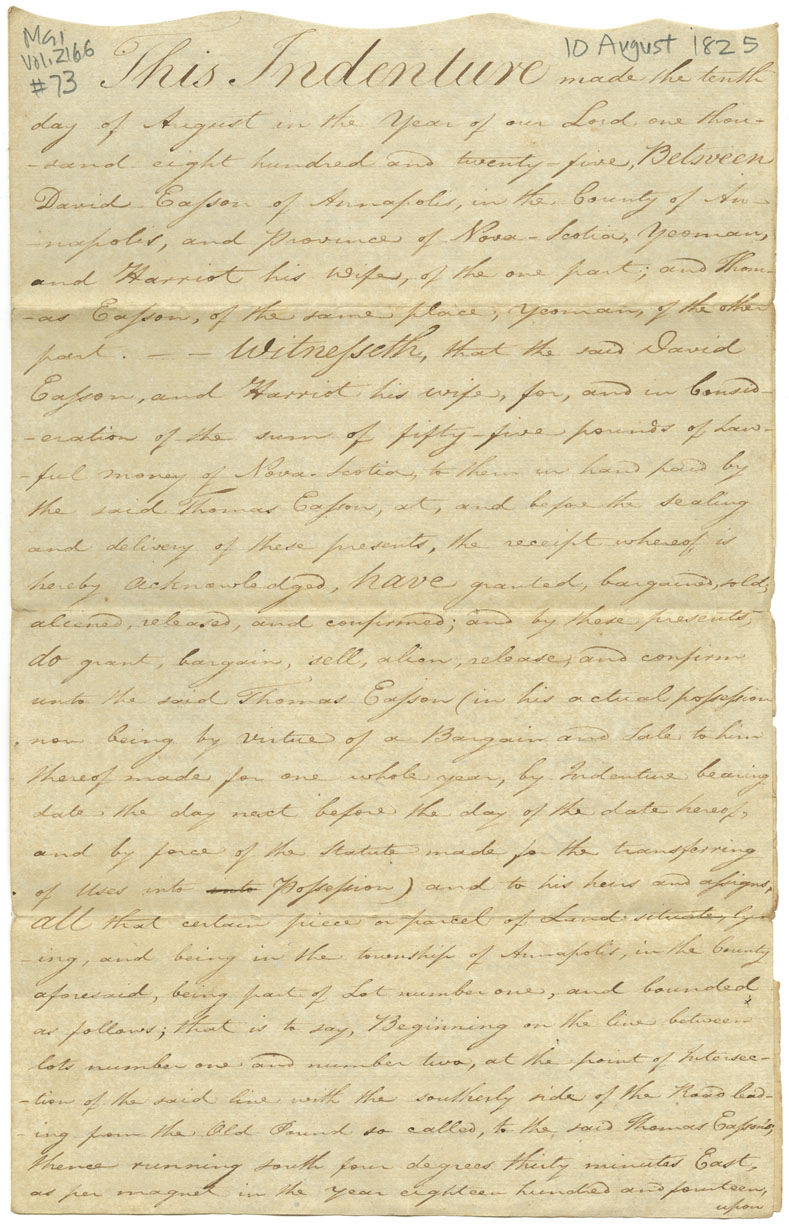 MG1
Vol. 2166
#73
10 August 1825
This Indenture made the tenth
day of August in the Year of our Lord one thou-
-sand eight hundred and twenty-five, Between
David Eaſson of Annapolis, in the County of An-
-napolis, and Province of Nova-Scotia, Yeoman,
and Harriot his Wife, of the one part; and Thom-
-as Eaſson, of the same place, Yeoman, of the other
part. – – Witneſseth, that the said David
Eaſson, and Harriot his wife, for, and in Consid-
-eration of the sum of fifty-five pounds of Law-
-ful money of Nova-Scotia, to them in hand paid by
the said Thomas Eaſson, at, and before the sealing
and delivery of these presents, the receipt whereof is
hereby acknowledged, have granted, bargained, sold,
aliened, released, and confirmed; and by these presents,
do grant, bargain, sell, alien, release, and confirm
unto the said Thomas Eaſson (in his actual poſseſsion
now being by virtue of a Bargain and Sale to him
thereof made for one whole year, by Indenture bearing
date the day next before the day of the date hereof,
and by force of the Statute made for the transferring
of Uses into into Poſseſsion) and to his heirs and aſsigns,
all that certain piece or parcel of Land situate, ly-
-ing, and being in the township of Annapolis, in the County
aforesaid, being part of Lot number one, and bounded
as follows; that is to say, Beginning on the line between
lots number one and number two, at the point of Intersec-
-tion of the said line with the southerly side of the Road lead-
-ing from the Old Pound so called, to the said Thomas Eaſson's,
thence running south four degrees thirty minutes East,
as per magnet in the year eighteen hundred and fourteen,
upon